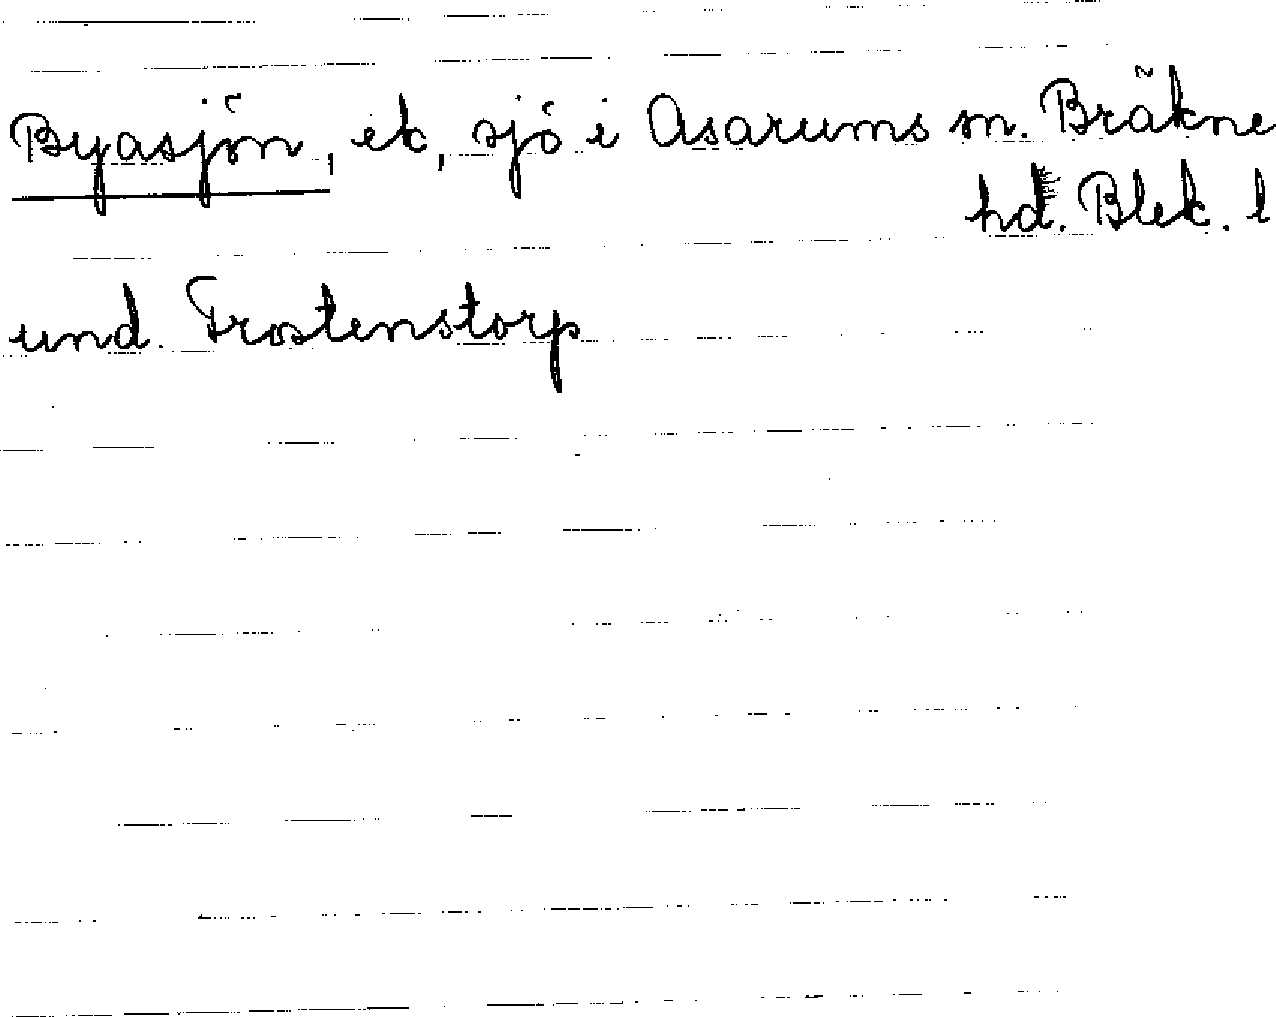 Byasjön, ek, sjö i Asarums sn. Bräkne
hd. Blek. l
und. Frostenstorp